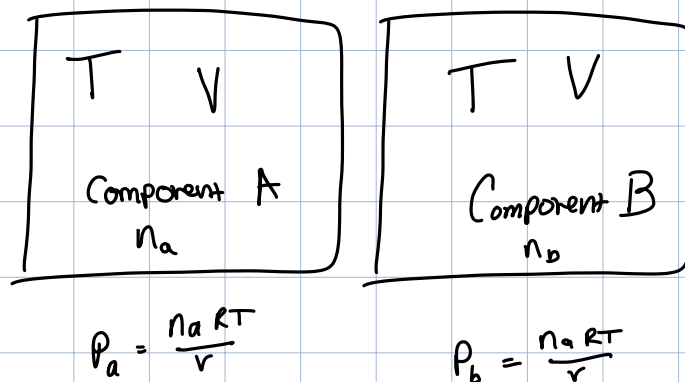 T V
Component A
n_a
P_a = n_a RT / V
T V
Component B
n_b
P_b = n_a RT / V